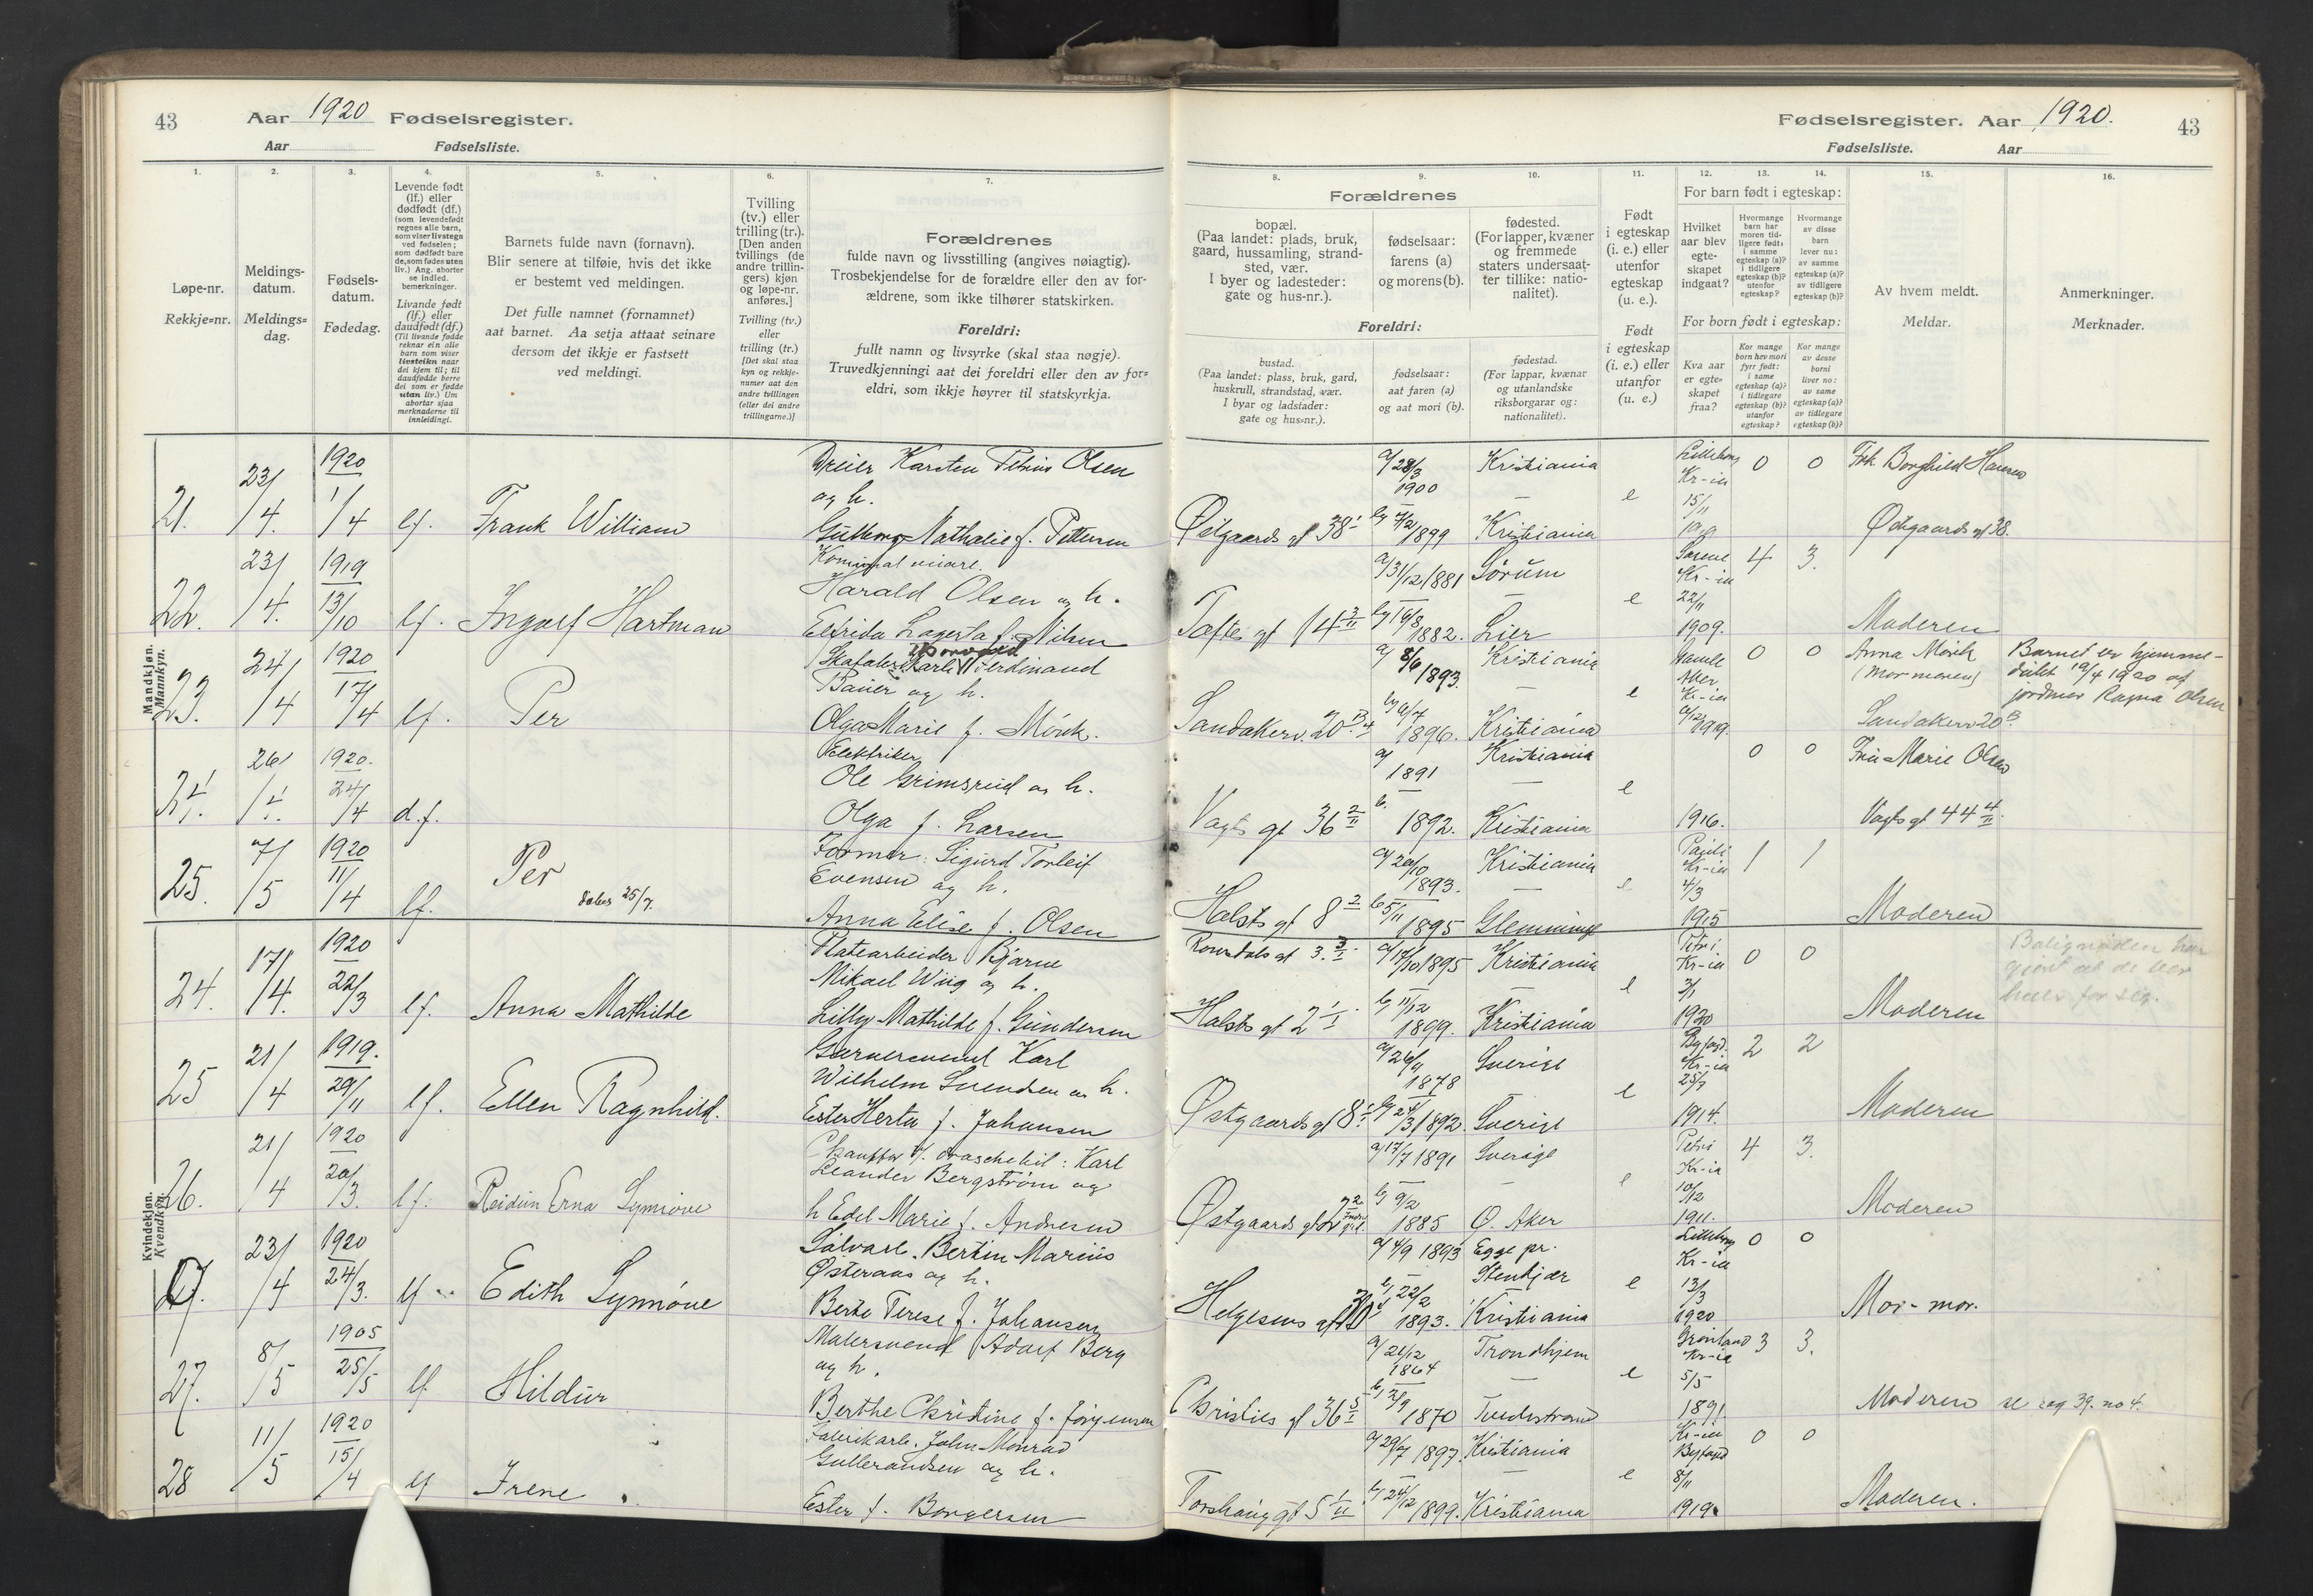 43
Aar 1920 Fødselsregister.
Aar Fødselsliste.
1.
2.
3.
4.
5.
6.
7.
Løpe-nr.
Rekkje=nr.
Meldings-
datum.
Meldings=
dag.
Fødsels-
datum.
Fødedag.
Levende født
(lf.) eller
dødfødt (df.)
(som levendefødt
regnes alle barn,
som viser livstegn
ved fødselen;
som dødfødt bare
de, som fødes uten
liv.) Ang. aborter
se indled.
bemerkninger.
Livande født
(lf.) eller
daudfødt (df.)
(Til livande fødde
reknar ein alle
barn som viser
livsteikn naar
dei kjem til; til
daudfødde berre
dei som er fødde
utan liv.) Um
abortar sjaa
merknaderne til
innleidingi.
Barnets fulde navn (fornavn).
Blir senere at tilføie, hvis det ikke
er bestemt ved meldingen.
Det fulle namnet (fornamnet)
aat barnet. Aa setja attaat seinare
dersom det ikkje er fastsett
ved meldingi.
Tvilling
(tv.) eller
trilling (tr.).
[Den anden
tvillings (de
andre trillin-
gers) kjøn
og løpe-nr.
anføres.]
Tvilling (tv.)
eller
trilling (tr.)
[Det skal staa
kyn og rekkje-
numer aat den
andre tvillingen
(eller dei andre
trillingarne.)]
Forældrenes
fulde navn og livsstilling (angives nøiagtig).
Trosbekjendelse for de forældre eller den av for-
ældrene, som ikke tilhører statskirken.
Foreldri:
fullt namn og livsyrke (skal staa nøgje).
Truvedkjenningi aat dei foreldri eller den av for=
eldri, som ikkje høyrer til statskyrkja.
Mandkjøn.
Mannkyn.
21. 23/4. 1920 1/4 lf. Frank William
Dreier Karsten Petrus Olsen
og h.
Gutborg Nathalie f. Pettersen
22. 23/4. 1919 13/10 lf. Ingolf Hartman
Harald Olsen og h.
Elfrida Lagerta f. Nilsen
23. 24/4 1920 17/4 lf. Per
Karl Ferdinand
Bauer og h.
Olga Marie f. Mörk.
24. 26/4. 1920. 24/4 d.f.
Elektriker
Ole Grimsrud og h.
Olga f. Larsen
25. 7/5 1920 11/4 lf. Per
døbes 25/7.
Former: Sigurd Torleif
Evensen og h.
Anna Elise f. Olsen
Kvindekjøn.
Kvendkyn.
24. 17/4. 1920 22/3 lf. Anna Mathilde
Platearbeider Bjarne
Mikael Wiig og h.
Lilly Mathilde f. Gundersen
25 21/4 1919. 29/11 lf. Ellen Ragnhild.
Garversvend Karl
Wilhelm Svendsen og h.
Ester Herta f. Johansen
26. 21/4 1920 20/3. lf. Reidun Erna Synnöve
Karl
Leander Bergström og
h Edel Marie f. Andresen
27. 23/4 1920 24/3. lf. Edith Synnöve
Bertin Marius
Østeraas og h.
Berte Terese f. Johansen
27. 8/5 1905 25/5 lf. Hildur
Malersvend Adolf Berg
og h.
Berthe Christine f. Jörgensen
28 11/5 1920 15/4 lf Irene
Fabrikarb. John Monrad
Gullerandsen og h.
Ester f. Borgersen
Fødselsregister. Aar 1920.
43
Fødselsliste. Aar
8.
9.
10.
11.
12.
13.
14.
15.
16.
Forældrenes
bopæl.
(Paa landet: plads, bruk,
gaard, hussamling, strand-
sted, vær.
I byer og ladesteder:
gate og hus-nr.).
fødselsaar:
farens (a)
og morens (b).
fødested.
(For lapper, kvæner
og fremmede
staters undersaat-
ter tillike: natio-
nalitet).
Foreldri:
bustad.
(Paa landet: plass, bruk, gard,
huskrull, strandstad, vær.
I byar og ladstader:
gate og hus=nr.).
fødselsaar:
aat faren (a)
og aat mori (b).
fødestad.
(For lappar, kvænar
og utanlandske
riksborgarar og:
nationalitet).
Født
i egteskap
(i. e.) eller
utenfor
egteskap
(u. e.).
Født
i egteskap
(i. e.) eller
utanfor
(u. e.)
For barn født i egteskap:
Hvilket
aar blev
egte-
skapet
indgaat?
Hvormange
barn har
moren tid-
ligere født:
i samme
egteskap (a)?
i tidligere
egteskap (b)?
utenfor
egteskap?
Hvormange
av disse
barn
lever nu:
av samme
egteskap (a)?
av tidligere
egteskap (b)?
For born født i egteskap:
Kva aar
er egte-
skapet
fraa?
Kor mange
born hev mori
fyrr født:
i same
egteskap (a)?
i tidlegare
egteskap (b)?
utanfor
egteskap?
Kor mange
av desse
borni
liver no:
av same
egteskap (a)?
av tidlegare
egteskap (b)?
Av hvem meldt.
Meldar.
Anmerkninger.
Merknader.
a/ 28/3 1900 Kristiania
Østgaards gt 38 b/ 7/2 1899 Kristiania e
Lilleborg Kr-ia 15/11 1919 0 0
Frk Borghild Hansen
Østgaards gt 38.
a/ 31/12 1881 Sørum
Toftes gt 14 b/ 16/8 1882. Lier e
Kr-ia 22/11 1909. 4 3.
Moderen
a/ 8/6 1893. Kristiania
Sandakerv. 20 1896. Kristiania e
Gamle Aker Kr-ia 1919. 0 0
Anna Mörk
(Mor moren)
Sandakerv 20 B
Barnet er hjemme-
døbt 19/4 1920 af
jordmor Ragna Olsen
a/ 1891 Kristiania
Vogts gt 36 2/II b. 1892. Kristiania e
1916. 0 0
Fru Marie Olsen
Vogts gt 44 4/II.
a/ 20/10 1893. Kristiania
Holsts gt 8 b 5/11 1895 Glemminge e
Pauli Kr-ia 4/3 1915 1 1
Moderen
Romsdals gt 3. a/ 17/10 1895 Kristiania
Holsts gt 2 1/I b/ 11/12 1899. Kristiania e
Petri Kr-ia 3/1 1920 0 0
Moderen
a/ 26/9 1878 Sverige
Østgaards gt 8 b/ 24/3 1892. Sverige e
Kr-ia 25/7 1914. 2 2
Moderen
a/ 17/7 1891 Sverige
Østgaards gt b/ 9/2 1885 Ø. Aker e
Petri Kr-ia 10/12 1911. 4 3.
Moderen
a/ 4/9 1893 Egge pr.
Stenkjær
Helgesens gt b/ 22/2 1893. Kristiania e
Lilleborg Kr-ia 13/3 1920 0 0
Mor-mor.
a/ 21/12 1864 Trondhjem
Christies gt 36 5/I 1870 Tvedestrand e
Grønland Kr-ia 5/5 1891. 3 3.
Moderen se reg 39. no 4.
a/ 29/7 1897. Kristiania
Torshauggt 5 1/II b/ 24/12 1899. Kristiania e
Kr-ia 8/11 1919. 0 0
Moderen.